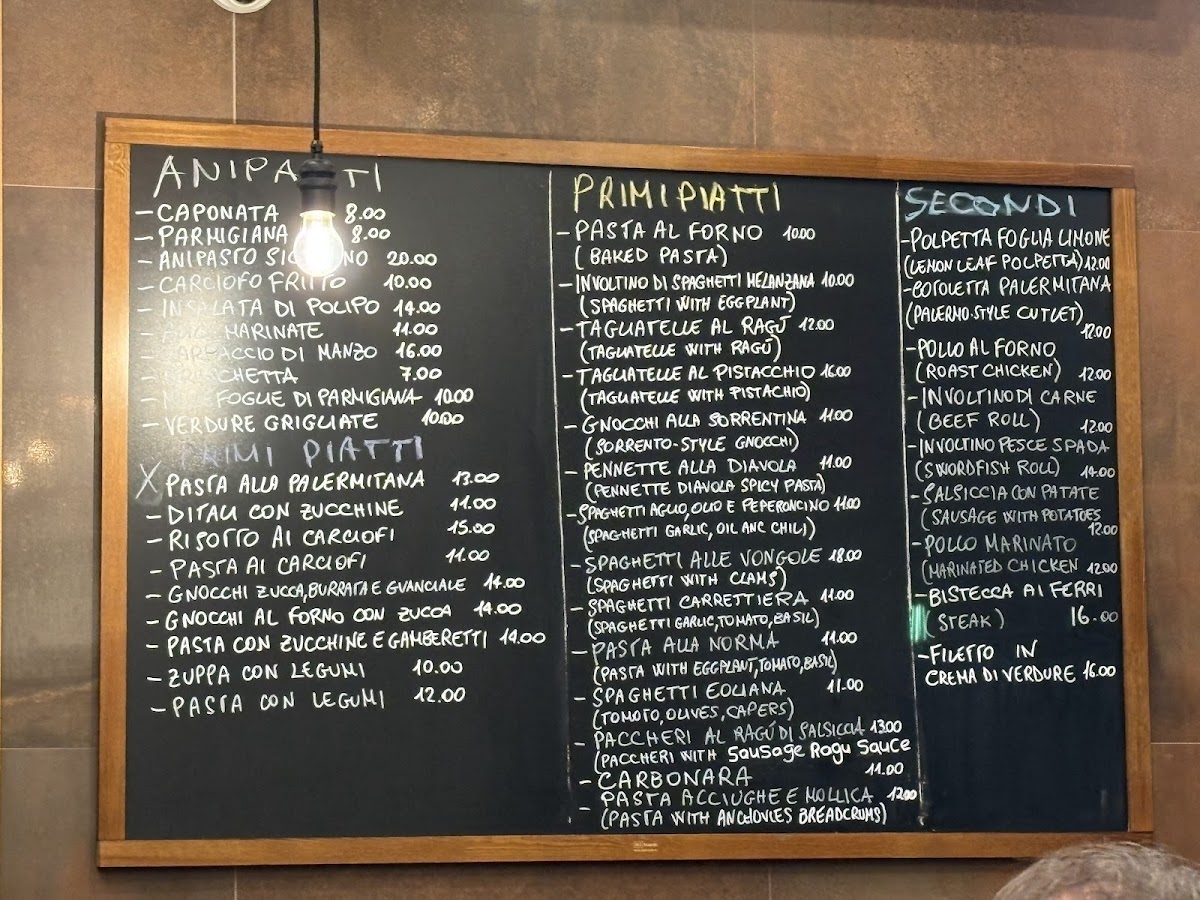 ANIPA TI
- CAPONATA 8.00
- PARMIGIANA 8.00
- ANIPASTO 20.00
- CARCIOFO FRITTO 10.00
- INSALATA DI POLIPO 14.00
MARINATE 11.00
- CARPACCIO DI MANZO 16.00
7.00
FOGLIE DI PARMIGIANA 10.00
- VERDURE GRIGLIATE 10.00
PRIMI PIATTI
X PASTA ALLA PALERMITANA 13.00
- DITALI CON ZUCCHINE 11.00
- RISOTTO AI CARCIOFI 15.00
- PASTA AI CARCIOFI 11.00
- GNOCCHI ZUCCA, BURRATA E GUANCIALE 14.00
- GNOCCHI AL FORNO CON ZUCCA 14.00
- PASTA CON ZUCCHINE E GAMBERETTI 14.00
- ZUPPA CON LEGUMI 10.00
- PASTA CON LEGUMI 12.00
PRIMI PIATTI
- PASTA AL FORNO 10.00
(BAKED PASTA)
- INVOLTINO DI SPAGHETTI MELANZANA 10.00
(SPAGHETTI WITH EGGPLANT)
- TAGLIATELLE AL RAGÚ 12.00
(TAGLIATELLE WITH RAGÚ)
- TAGLIATELLE AL PISTACCHIO 16.00
(TAGLIATELLE WITH PISTACHIO)
- GNOCCHI ALLA SORRENTINA 11.00
(SORRENTO-STYLE GNOCCHI)
- PENNETTE ALLA DIAVOLA 11.00
(PENNETTE DIAVOLA SPICY PASTA)
- SPAGHETTI AGLIO, OLIO E PEPERONCINO 11.00
(SPAGHETTI GARLIC, OIL ANC CHILI)
- SPAGHETTI ALLE VONGOLE 18.00
(SPAGHETTI WITH CLAMS)
- SPAGHETTI CARRETTIERA 11.00
(SPAGHETTI GARLIC, TOMATO, BASIL)
- PASTA ALLA NORMA 11.00
(PASTA WITH EGGPLANT, TOMATO, BASIL)
- SPAGHETTI EOLIANA 11.00
(TOMOTO, OLIVES, CAPERS)
- PACCHERI AL RAGÚ DI SALSICCIA 13.00
(PACCHERI WITH SAUSAGE RAGU SAUCE
- CARBONARA 11.00
- PASTA ACCIUGHE E MOLLICA 12.00
(PASTA WITH ANCHOVIES BREADCRUMS)
SECONDI
- POLPETTA FOGLIA LIMONE
(LEMON LEAF POLPETTA) 12.00
- COTOLETTA PALERMITANA
(PALERMO-STYLE CUTLET)
12.00
- POLLO AL FORNO
(ROAST CHICKEN) 12.00
- INVOLTINO DI CARNE
(BEEF ROLL) 12.00
- INVOLTINO PESCE SPADA
(SWORDFISH ROLL) 14.00
- SALSICCIA CON PATATE
(SAUSAGE WITH POTATOES
12.00
- POLLO MARINATO
(MARINATED CHICKEN 12.00
- BISTECCA AI FERRI
(STEAK) 16.00
- FILETTO IN
CREMA DI VERDURE 16.00